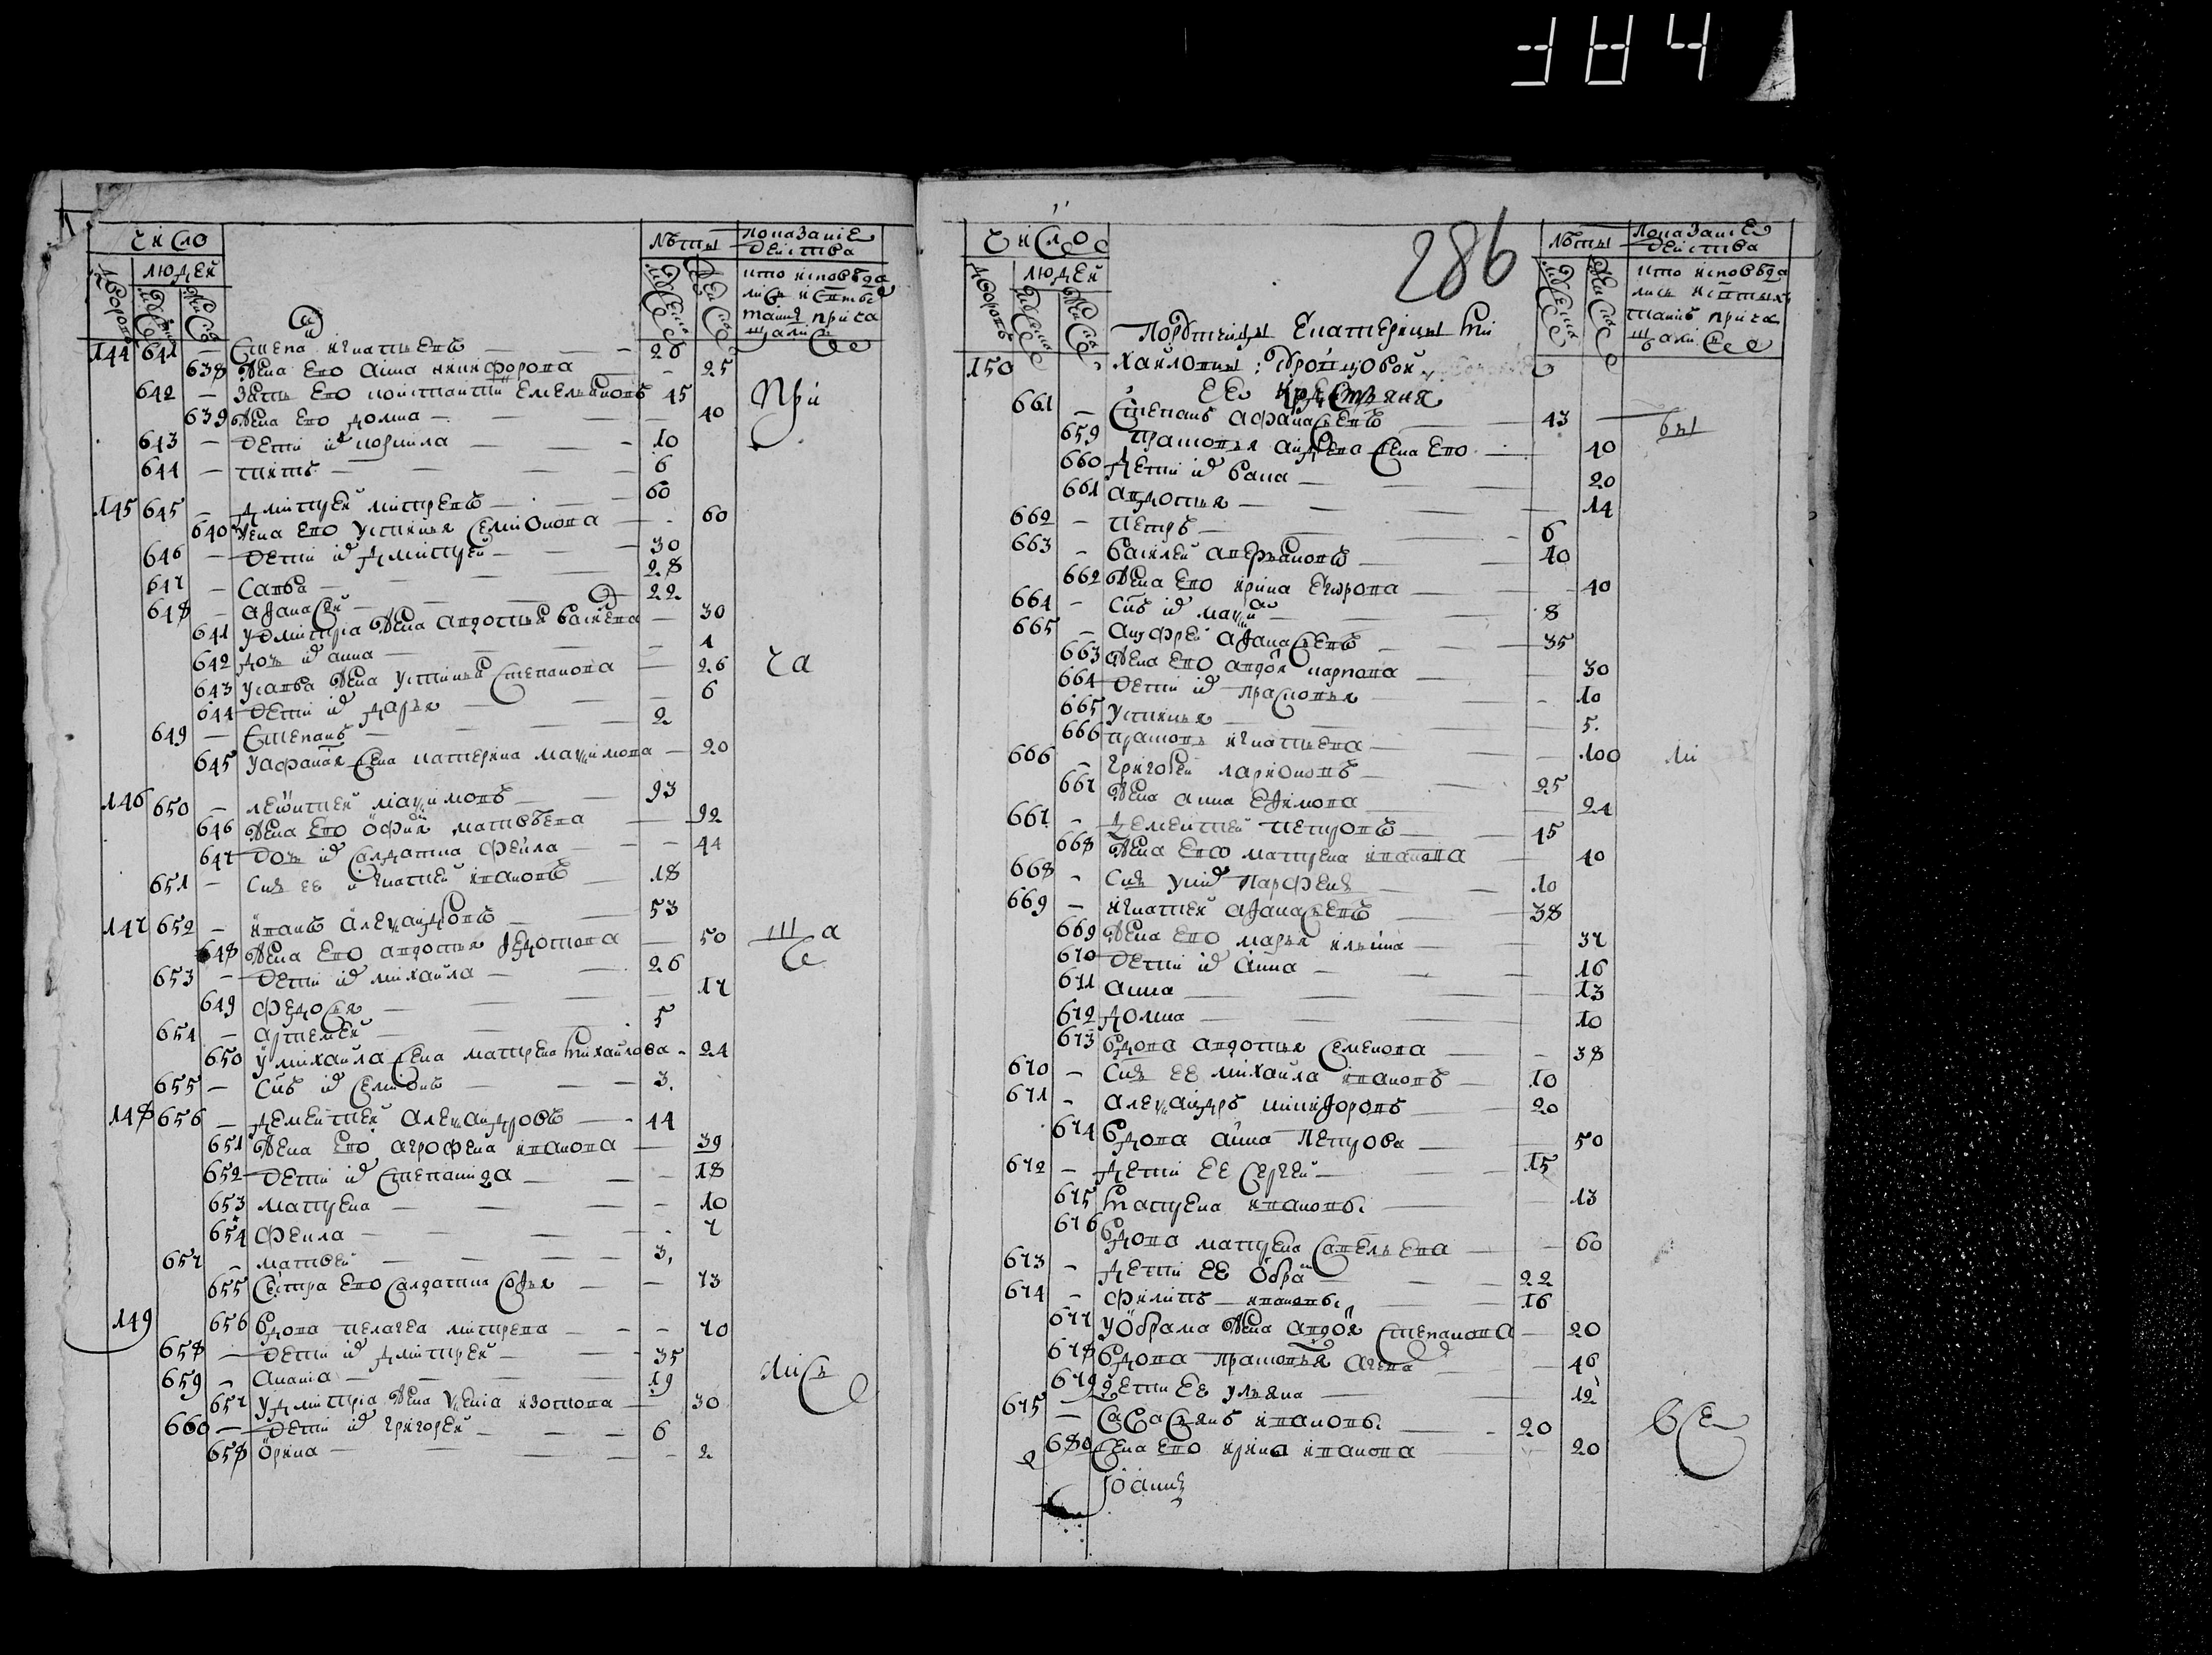 384
число
лѣты
показание
действа
дворовъ
людей
кто исповѣда
лись и с�тыхъ
таинъ прича
щалися
144 641 — Степа[н] игнатьевъ — 26
638 жена ево анна никифорова — 25
642 — зять ево констаптин Емельяновъ 45
При
639 жена ево домна — 40
643 — дети их кормила — 10
644 — титъ — 6
145 645 — дмитрей митревъ — 60
640 жена ево устинья семионова — 60
646 — дети их дмитрей — 30
647 — савва — 28
648 — афанасей — 22
641 у дмитрия жена авдотья васи�ева — 30
642 дочь их анна — 1
643 у савва жена устинья степанова — 26
ча
644 дети их дарья — 6
649 — степанъ — 2
645 у афанася жена катерина максимова — 20
146 650 — леонтией максимовъ — 93
646 жена ево офимя матвѣева — 92
647 дочь их салдатка фекла — 44
651 — сынъ ее игнатией ивановъ — 18
147 652 — иванъ александровъ — 53
648 жена ево авдотья федотова — 50
ща
653 — дети их михаила — 26
649 федосья — 17
654 — артемей — 5
650 у михаила жена матрена михаилова — 24
655 — сынъ их семионъ — 3
148 656 — дементией александровъ — 44
651 жена ево агрофена иванова — 39
652 дети их степанида — 18
653 матрена — 10
654 фекла — 7
657 — матвей — 3
655 сестра ево салдатка софья — 73
149 656 вдова пелагея митрева — 70
658 — дети их дмитрей — 35
659 — анания — 19
лись
657 у дмитрия жена ксения изотова — 30
660 — дети их григорей — 6
658 орина — 2
286
число
лѣты
показание
действа
дворовъ
людей
кто исповѣда
лись и с�тыхъ
таинъ прича
щалися
Порутчицы Екатерины ми
150 хаиловны
ее крестьяня
661 — степанъ афанасьевъ — 43
бы
659 прасковья андреева жена ево — 40
660 дети их — 20
661 авдотья — 14
662 — петръ — 6
663 — василей аверьяновъ — 40
662 жена ево ирина егорова — 40
664 — сынъ их максимъ — 8
665 — андрей афанасьевъ — 35
663 жена ево авдотя карпова — 30
664 дети их прасковья — 10
665 устинья — 5
666 праскови игнатьева — 100
ли
666 — григорей ларионовъ — 25
667 жена анна ефимова — 24
667 — дементией петровъ — 45
668 жена ево матрена иванова — 40
668 — сынъ у них парфенъ — 10
669 — игнатией афанасьевъ — 38
669 жена ево марья ильина — 37
670 дети их анна — 16
671 анна — 13
672 домна — 10
673 вдова авдотья семенова — 38
670 — сынъ ее михаила ивановъ — 10
671 — александръ никифоровъ — 20
674 вдова анна петрова — 50
672 — дети ее сергей — 15
675 матрена ивановы — 13
676 вдова матрена савельева — 60
673 — дети ее обрам — 22
674 — филипъ ивановы — 16
677 у обрама жена авдотя степанова — 20
678 вдова прасковья — 46
679 дети ее ульяна — 12
675 — савасьянъ ивановы — 20
все
680 жена ево ирина иванова — 20
иоаннъ